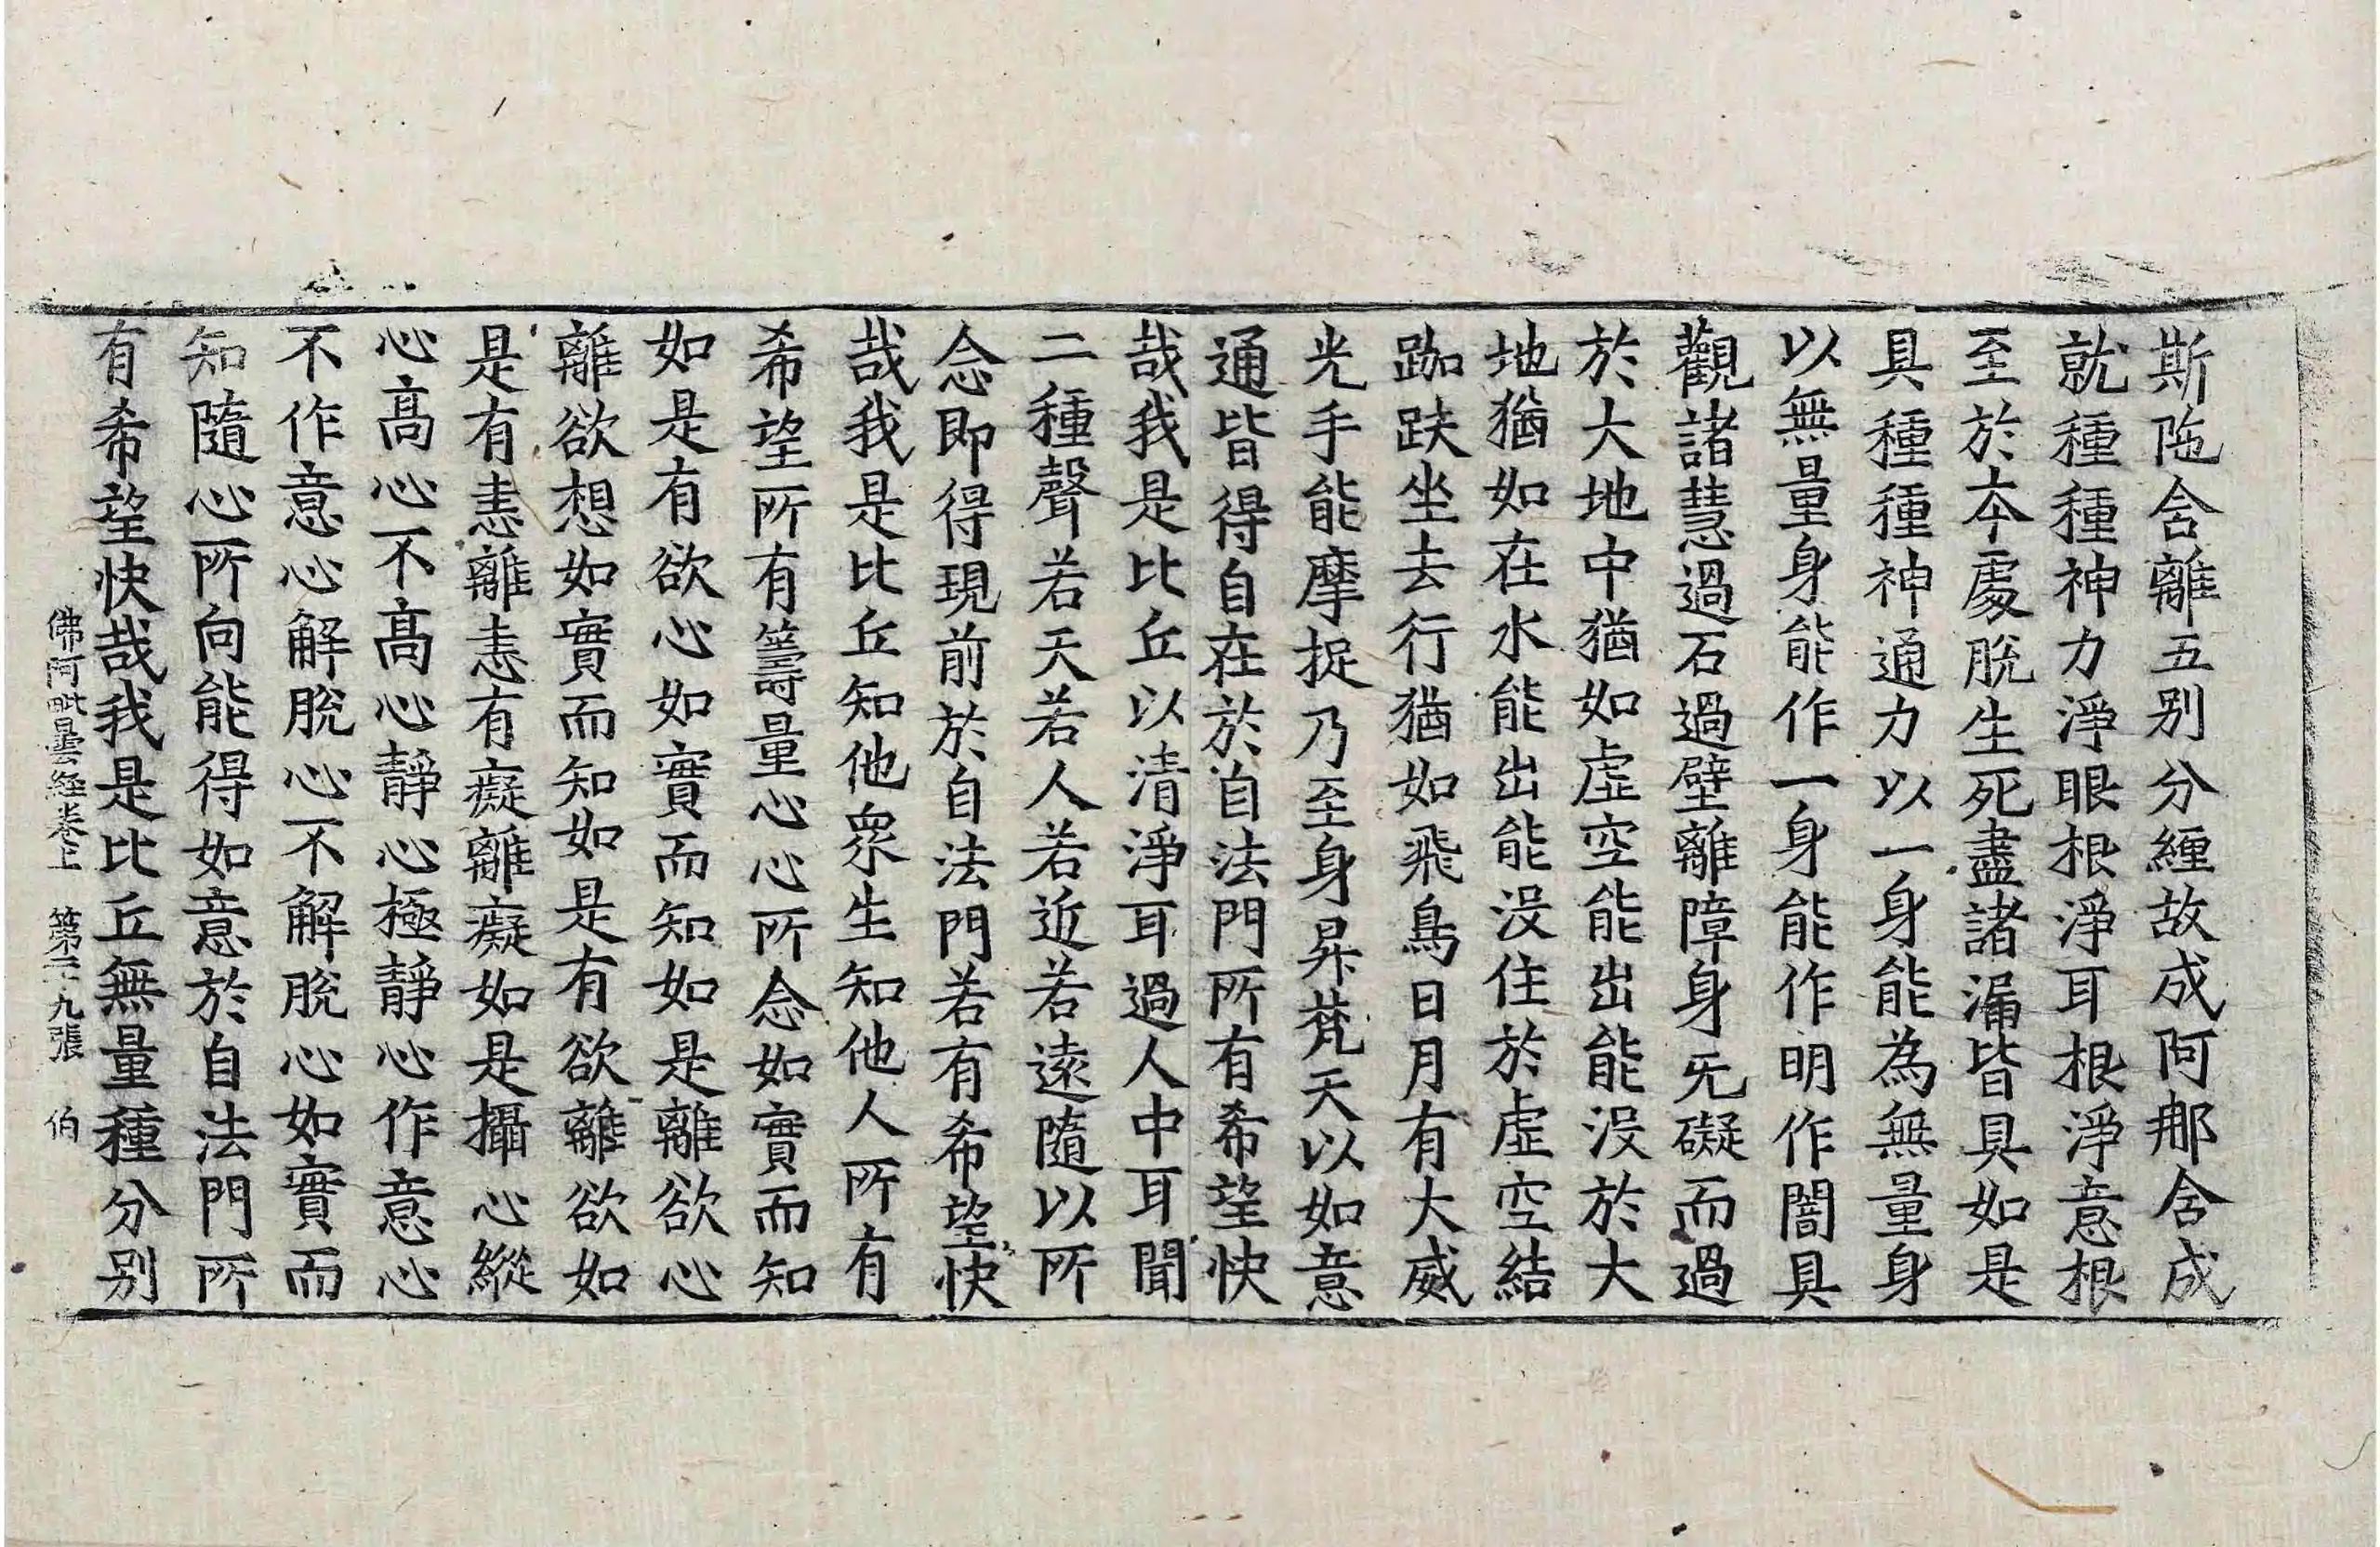 斯陁含離五别分纏故成阿那含成
就種種神力淨眼根淨耳根淨意根
至於本處脫生死盡諸漏皆具如是
具種種神通力以一身能為無量身
以無量身能作一身能作明作闇具
觀諸慧過石過壁離障身无礙而過
於大地中猶如虛空能出能没於大
地猶如在水能出能没住於虛空結
跏趺坐去行猶如飛鳥日月有大威
光手能摩捉乃至身昇梵天以如意
通皆得自在於自法門所有希望快
哉我是比丘以清淨耳過人中耳聞
二種聲若天若人若近若遠隨以所
念即得現前於自法門若有希望快
哉我是比丘知他衆生知他人所有
希望所有籌量心心所念如實而知
如是有欲心如實而知如是離欲心
離欲想如實而知如是有欲離欲如
是有恚離恚有癡離癡如是攝心縱
心高心不高心靜心極靜心作意心
不作意心解脫心不解脫心如實而
知隨心所向能得如意於自法門所
有希望快哉我是比丘無量種分别
佛阿毗曇経卷上 第二十九張 伯